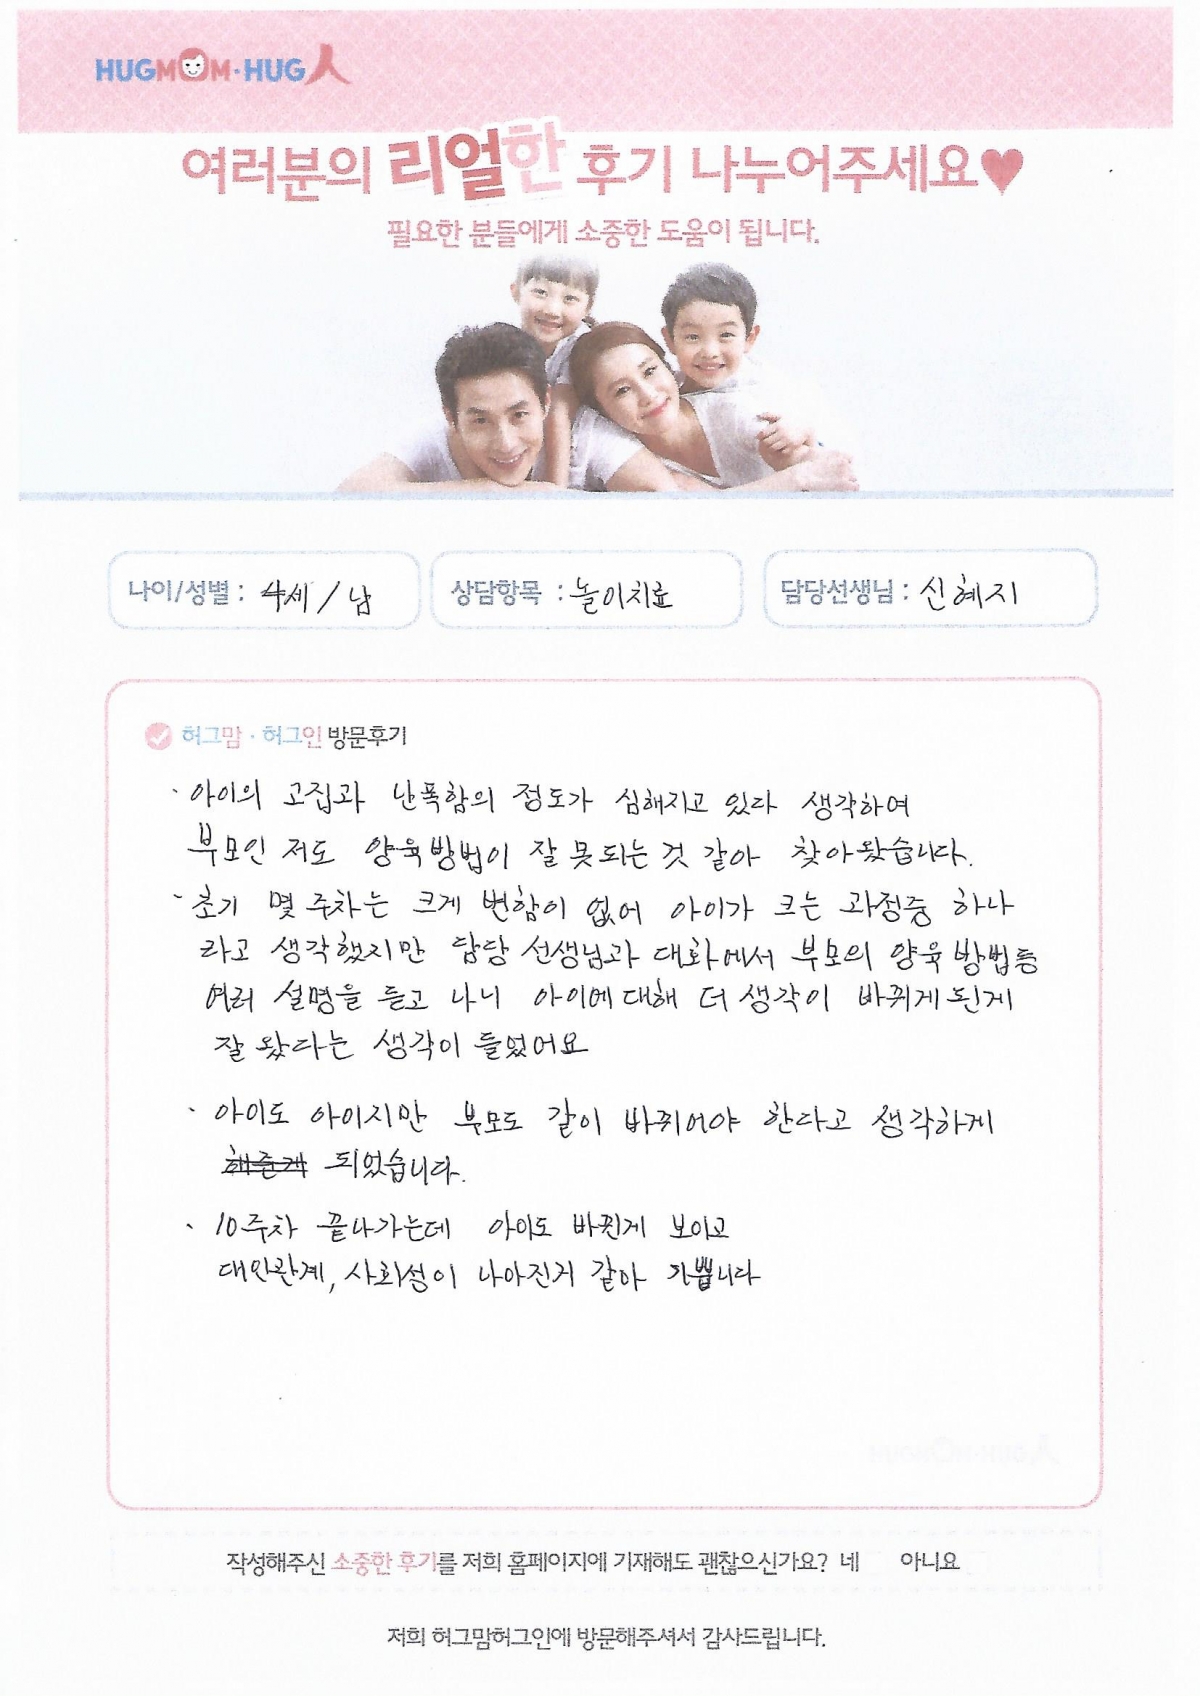 HUGMOM·HUG人
여러분의 리얼한 후기 나누어주세요♥
필요한 분들에게 소중한 도움이 됩니다.
나이/성별 : 4세 / 남
상담항목 : 놀이치료
담당선생님 : 신혜지
허그맘 · 허그인 방문후기
· 아이의 고집과 난폭함의 정도가 심해지고 있다 생각하여
부모인 저도 양육방법이 잘 못되는 것 같아 찾아왔습니다.
· 초기 몇 주차는 크게 변함이 없어 아이가 크는 과정중 하나
라고 생각했지만 담당 선생님과 대화에서 부모의 양육 방법등
여러 설명을 듣고 나니 아이에 대해 더 생각이 바뀌게 된게
잘 왔다는 생각이 들었어요
· 아이도 아이지만 부모도 같이 바뀌어야 한다고 생각하게
해준게 되었습니다.
· 10주차 끝나가는데 아이도 바뀐게 보이고
대인관계, 사회성이 나아진거 같아 기쁩니다
작성해주신 소중한 후기를 저희 홈페이지에 기재해도 괜찮으신가요? 네 아니요
저희 허그맘허그인에 방문해주셔서 감사드립니다.